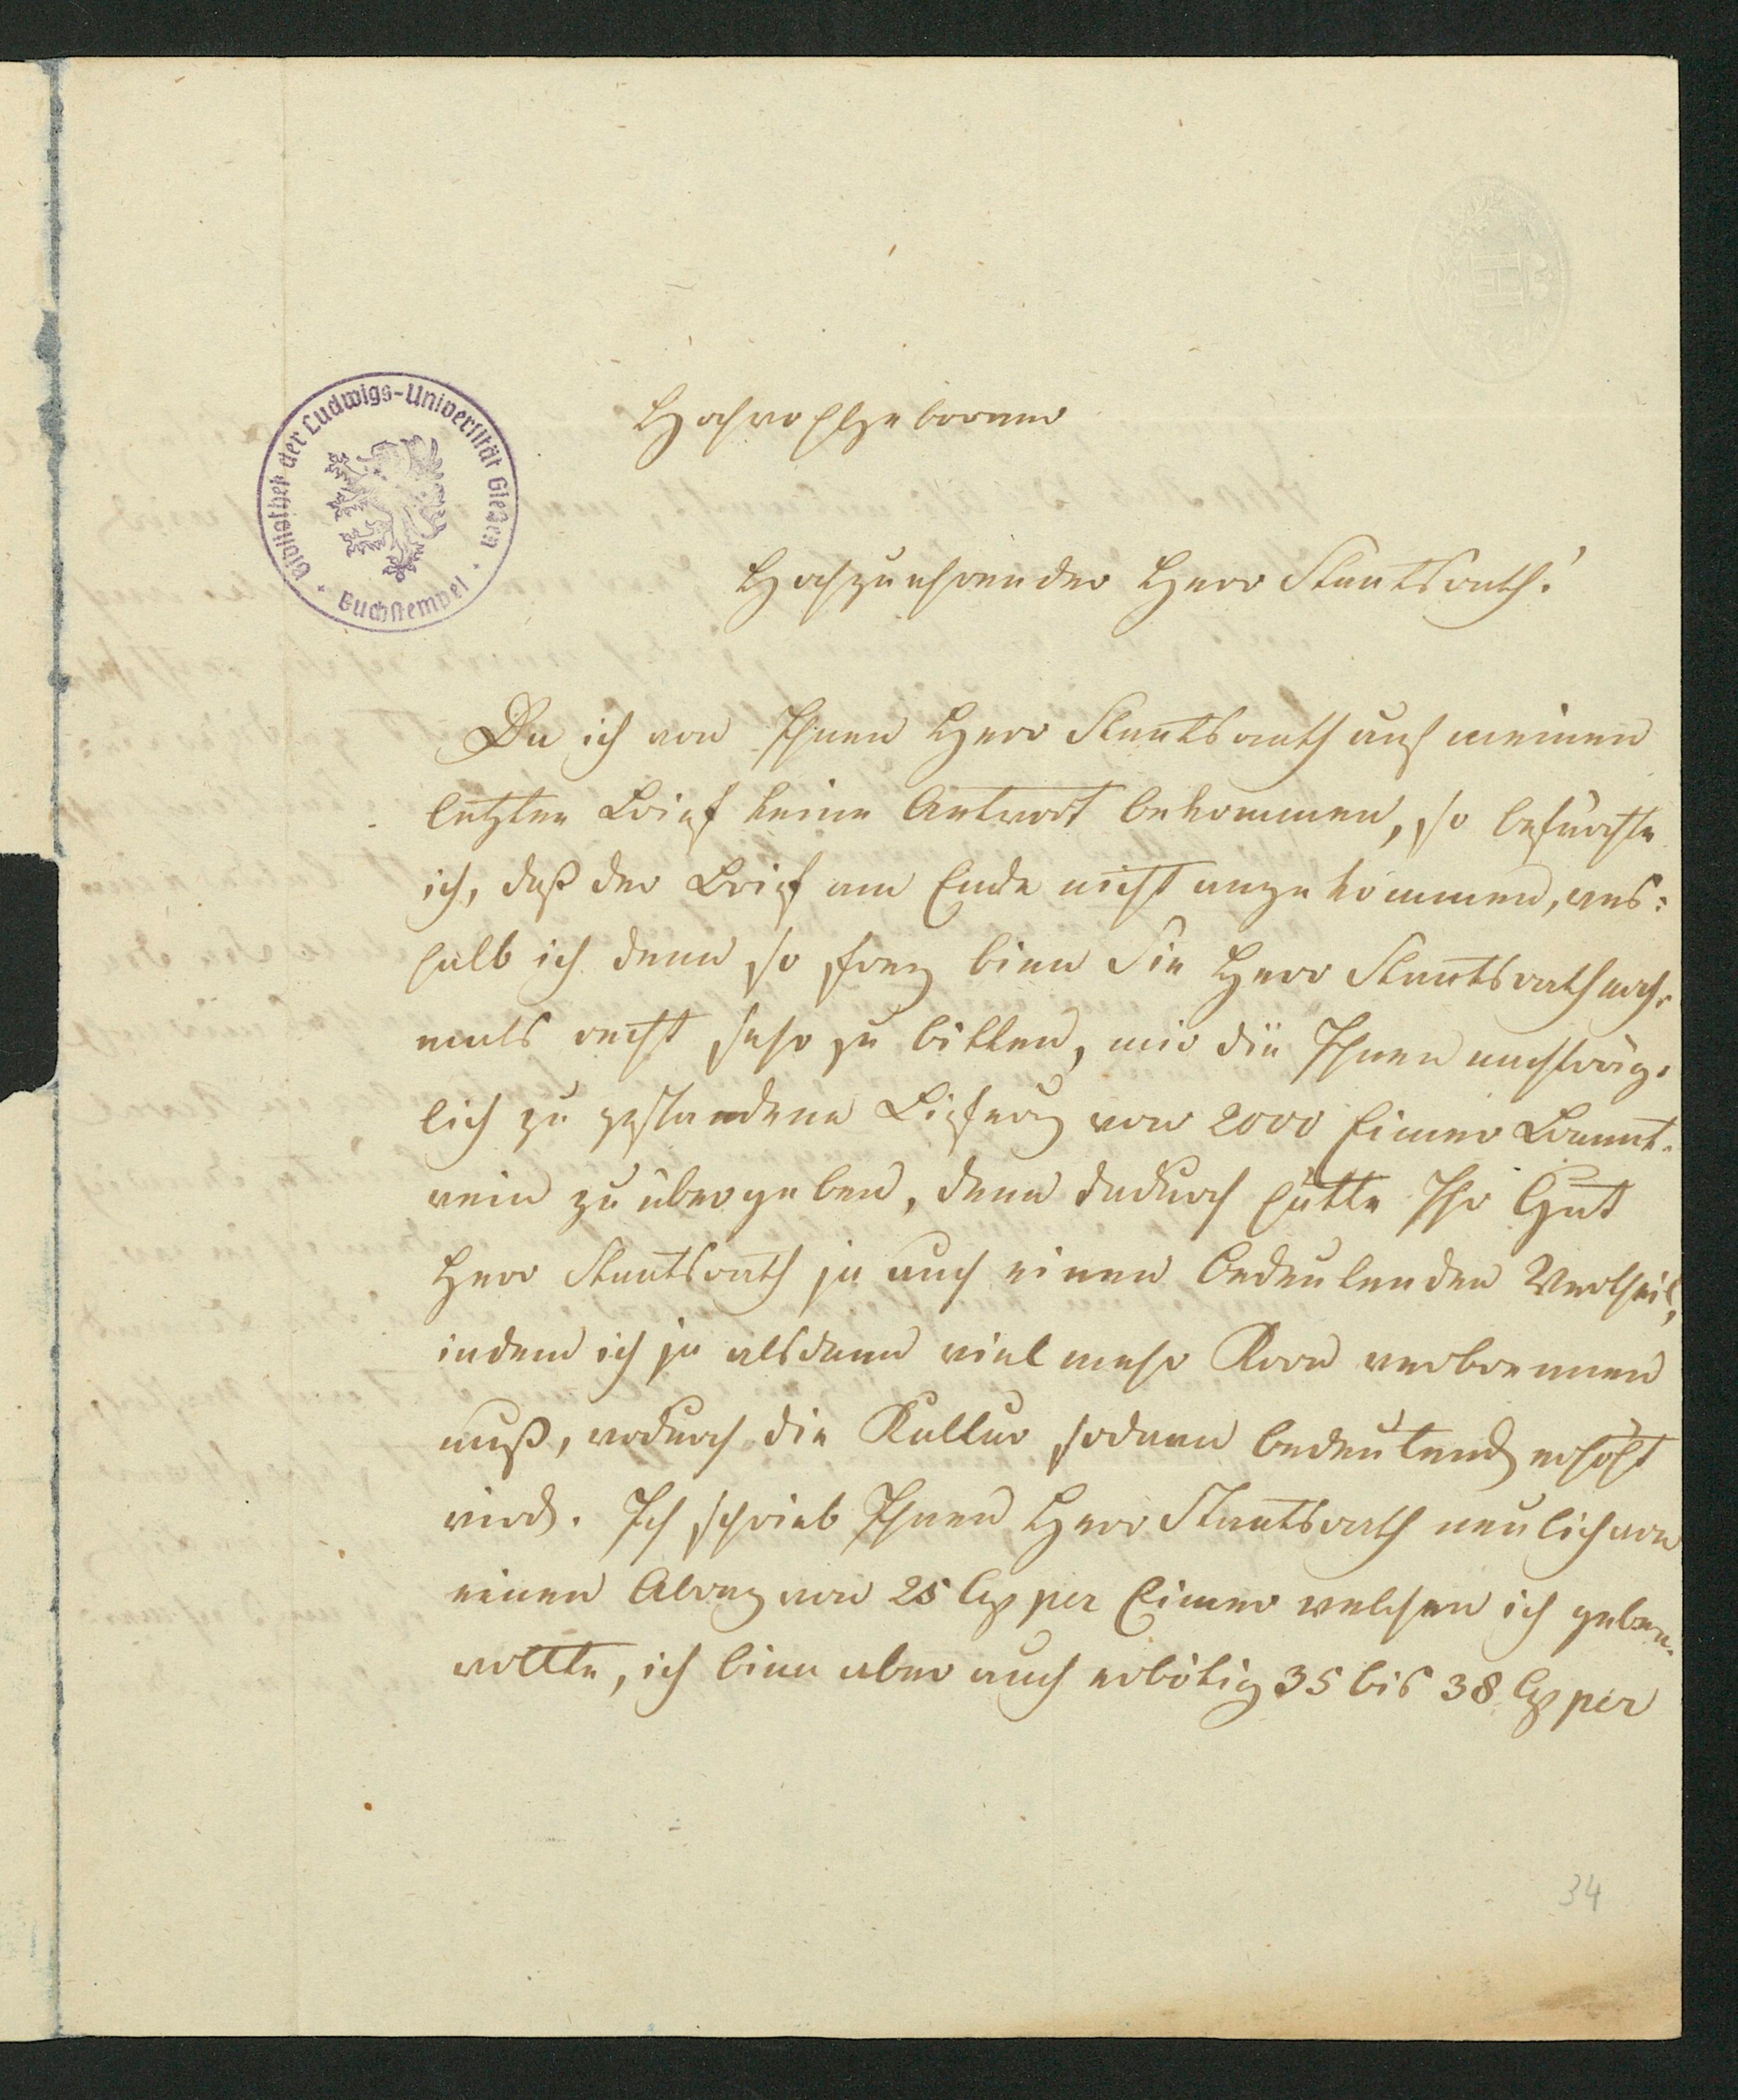 Bibliothek der Ludwigs-Universität Gießen
Buchstempel
Hochwohlgeborner
Hochzuehrender Herr Staatsrath!
Da ich von Ihnen Herr Staatsrath auf meinen
letzten Brief keine Antwort bekommen, so befürchte
ich, daß der Brief am Ende nicht angekommen, wes:
halb ich denn so frey binn Sie Herr Staatsrath noch-
mals recht sehr zu bitten, mir die Ihnen nachträg-
lich zu gestandene Liefrung von 2000 Eimer Brannt-
wein zu übergeben, denn dadurch hätte Ihr Gut
Herr Staatsrath ja auch einen bedeutenden Vortheil,
indem ich ja alsdann viel mehr Korn verbrennen
muß, wodurch die Kultur sodann bedeutend erhöht
wird. Ich schrieb Ihnen Herr Staatsrath neulich von
einen Abtrag von 25 Cop per Eimer welchen ich geben
wollte, ich binn aber auch erbötig 35 bis 38 Cop per
34